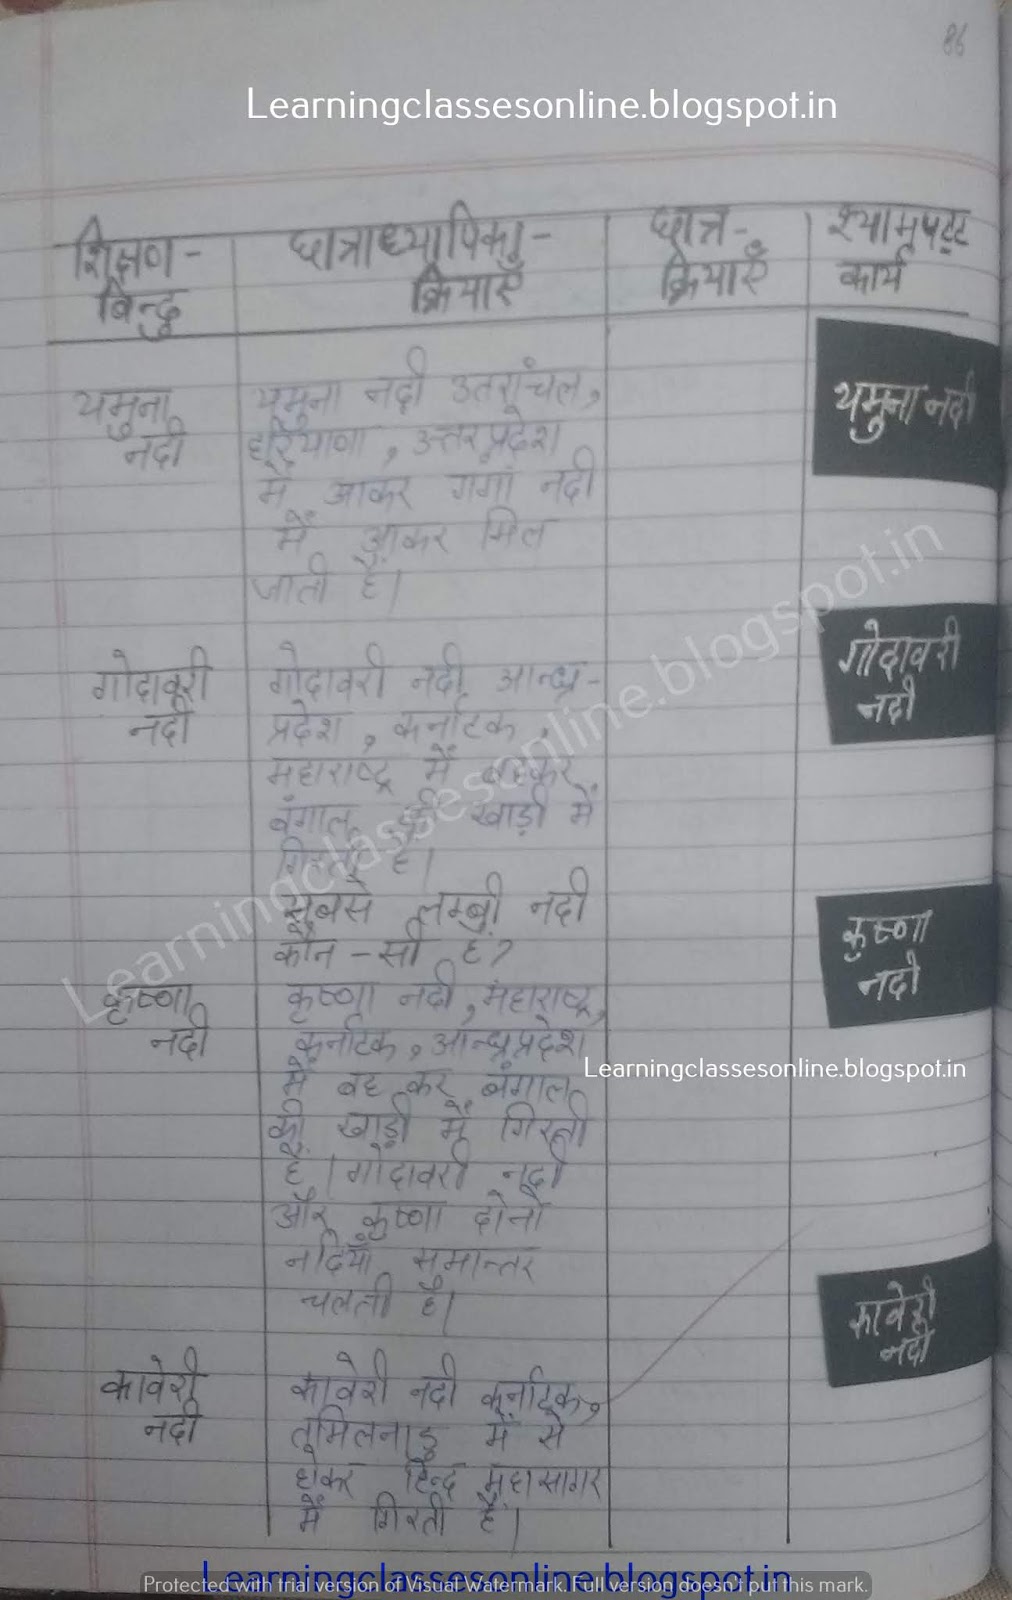 86
Learningclassesonline.blogspot.in
शिक्षण-
बिन्दु
छात्राध्यापिका-
क्रियाएँ
छात्र-
क्रियाएँ
श्यामपट्ट
कार्य
यमुना
नदी
यमुना नदी उतरांचल,
हरियाणा, उत्तरप्रदेश
में आकर गंगा नदी
में आकर मिल
जाती है।
यमुना नदी
गोदावरी
नदी
गोदावरी नदी आन्ध्र-
प्रदेश, कर्नाटक,
महाराष्ट्र में बहकर
बंगाल की खाड़ी में
गिरती है।
सबसे लम्बी नदी
कौन-सी है?
गोदावरी
नदी
कृष्णा
नदी
कृष्णा नदी, महाराष्ट्र,
कर्नाटक, आन्ध्रप्रदेश
में बह कर बंगाल
की खाड़ी में गिरती
है। गोदावरी नदी
और कृष्णा दोनों
नदियाँ समान्तर
चलती है।
कृष्णा
नदी
Learningclassesonline.blogspot.in
कावेरी
नदी
कावेरी नदी कर्नाटक,
तमिलनाडु में से
होकर हिन्द महासागर
में गिरती है।
कावेरी
नदी
Learningclassesonline.blogspot.in
Learningclassesonline.blogspot.in
Protected with trial version of Visual Watermark. Full version doesn't put this mark.